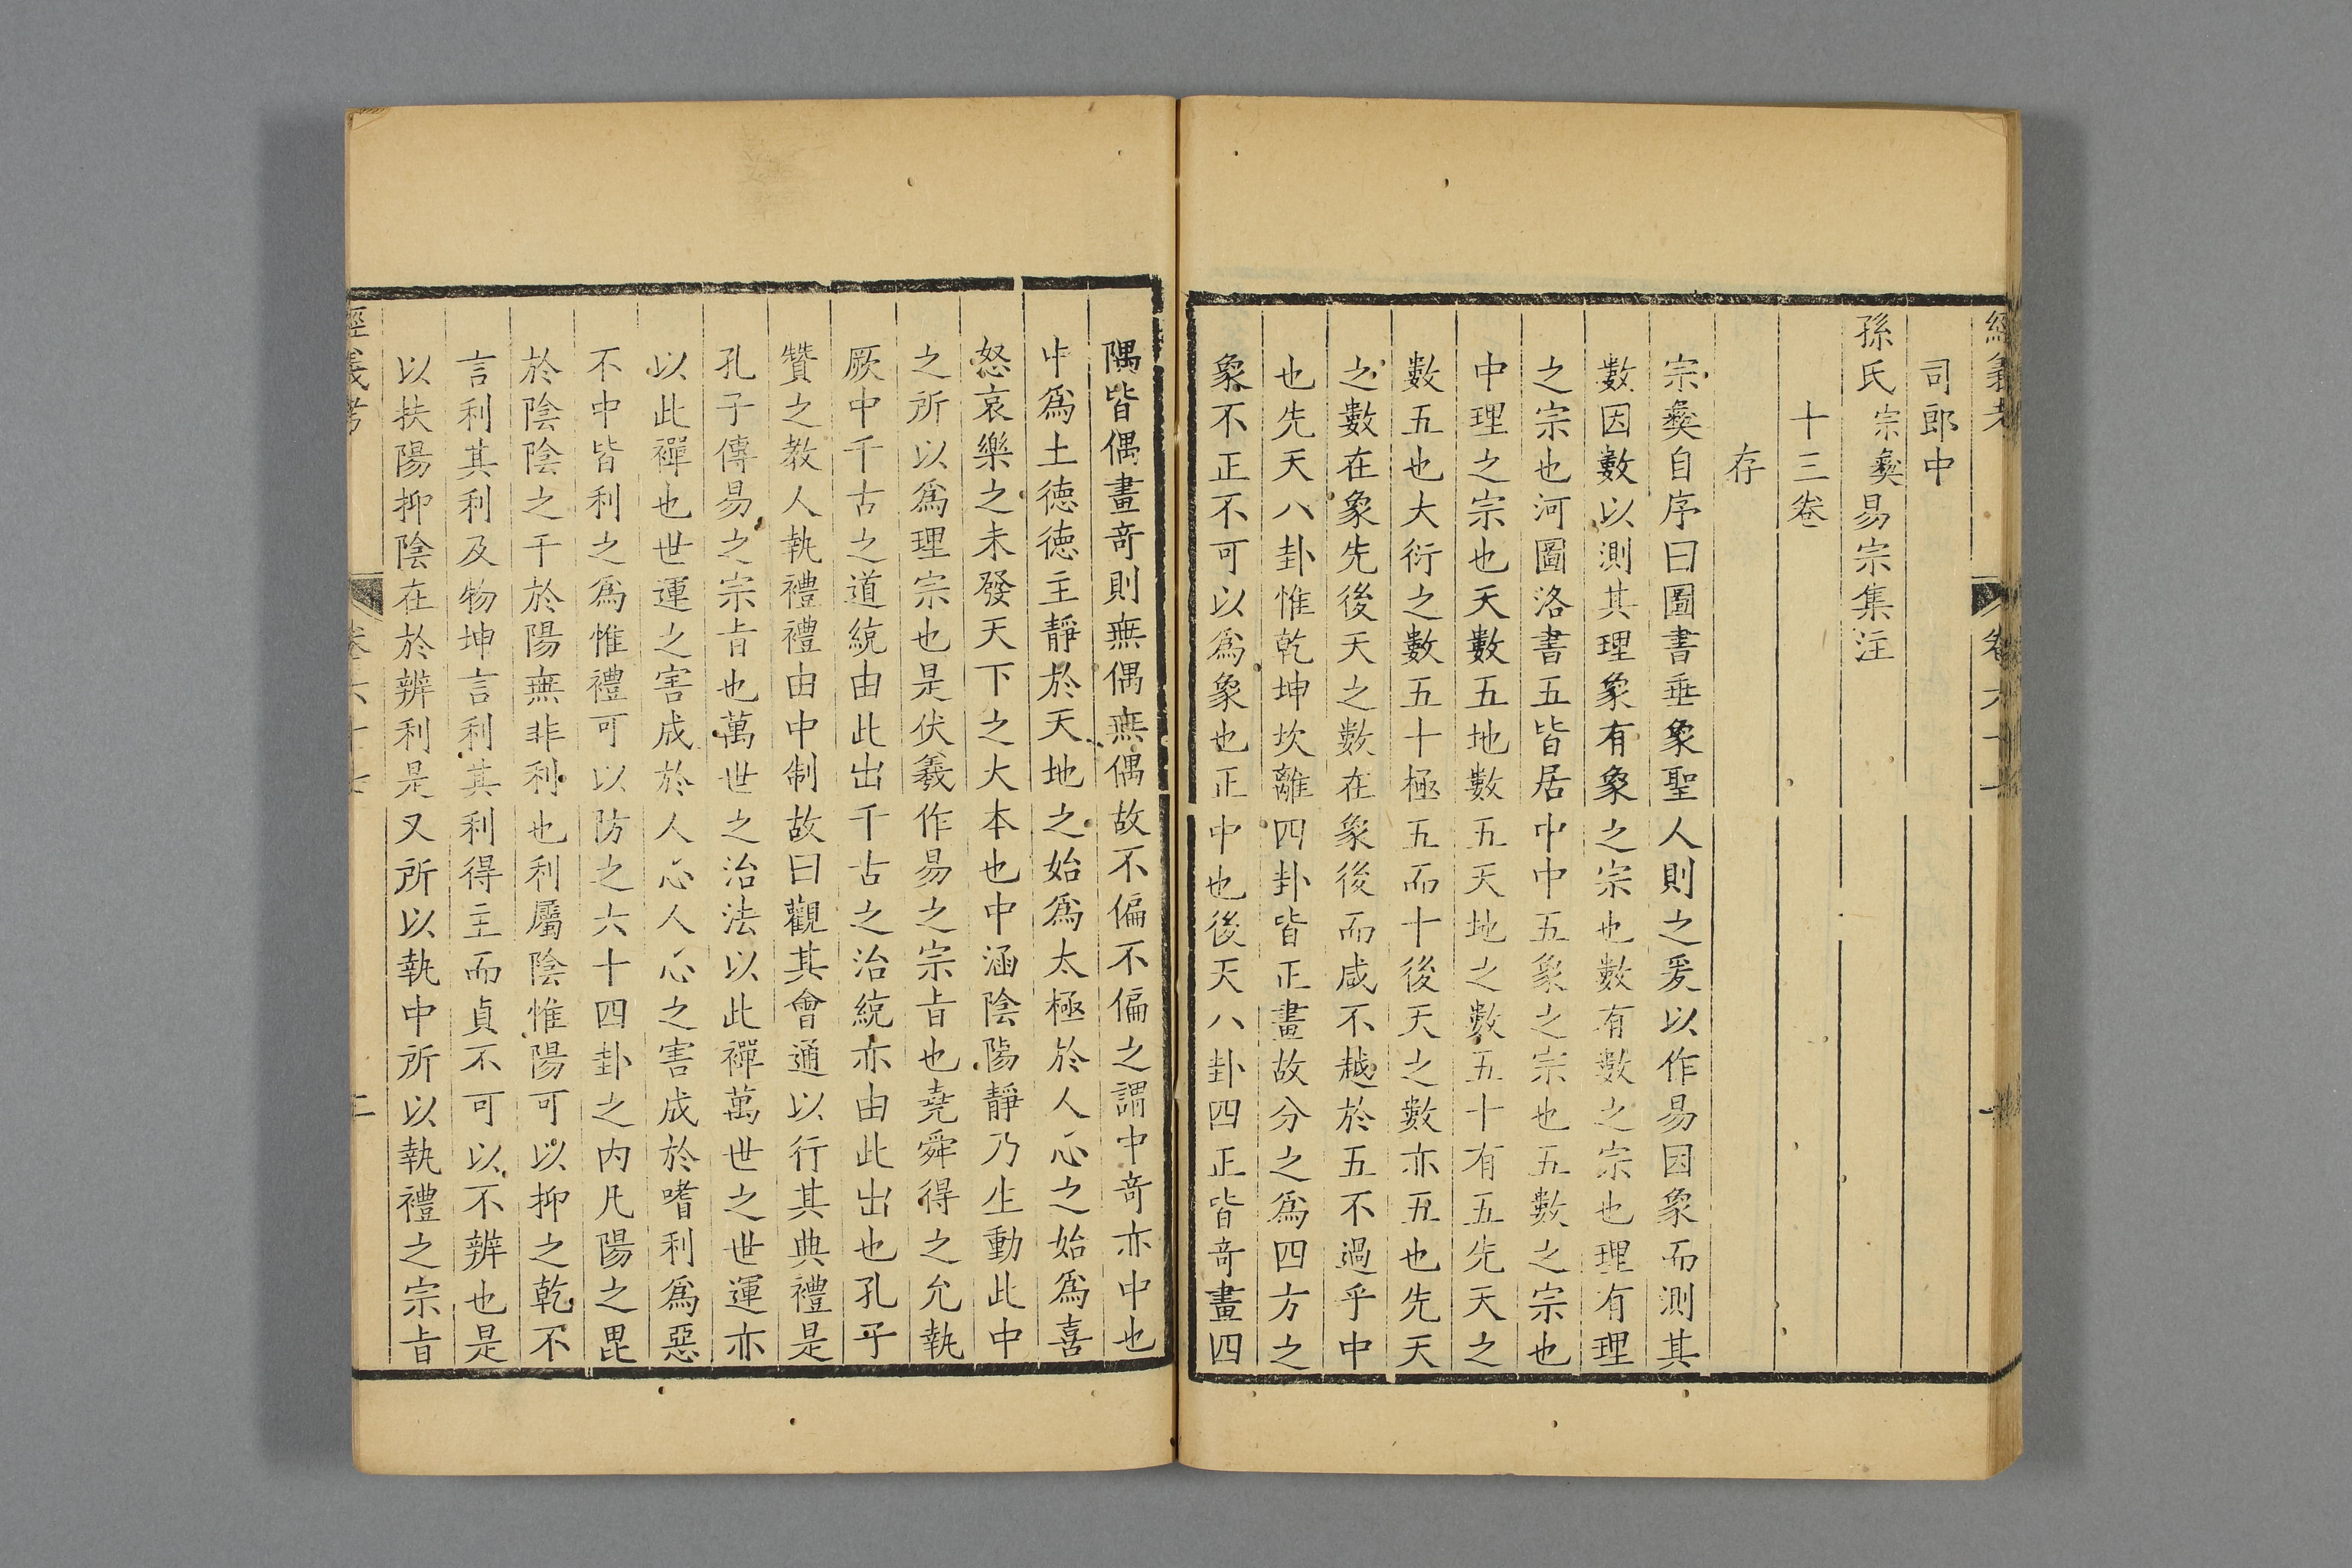 司郎中
孫氏宗彝易宗集注
十三卷
存
宗彝自序曰圖書垂象聖人則之爰以作易因象而測其
數因數以測其理象有象之宗也數有數之宗也理有理
之宗也河圖洛書五皆居中中五象之宗也五數之宗也
中理之宗也天數五地數五天地之數五十有五先天之
數五也大衍之數五十極五而十後天之數亦五也先天
之數在象先後天之數在象後而咸不越於五不過乎中
也先天八卦惟乾坤坎離四卦皆正畫故分之為四方之
象不正不可以為象也正中也後天八卦四正皆奇畫四
隅皆偶畫奇則無偶無偶故不偏不偏之謂中奇亦中也
中為土德德主靜於天地之始為太極於人心之始為喜
怒哀樂之未發天下之大本也中涵陰陽靜乃生動此中
之所以為理宗也是伏羲作易之宗旨也堯舜得之允執
厥中千古之道統由此出千古之治統亦由此出也孔子
贊之教人執禮禮由中制故曰觀其會通以行其典禮是
孔子傳易之宗旨也萬世之治法以此禪萬世之世運亦
以此禪也世運之害成於人心人心之害成於嗜利為惡
不中皆利之為惟禮可以防之六十四卦之內凡陽之毘
於陰陰之干於陽無非利也利屬陰惟陽可以抑之乾不
言利其利及物坤言利其利得主而貞不可以不辨也是
以扶陽抑陰在於辨利是又所以執中所以執禮之宗旨